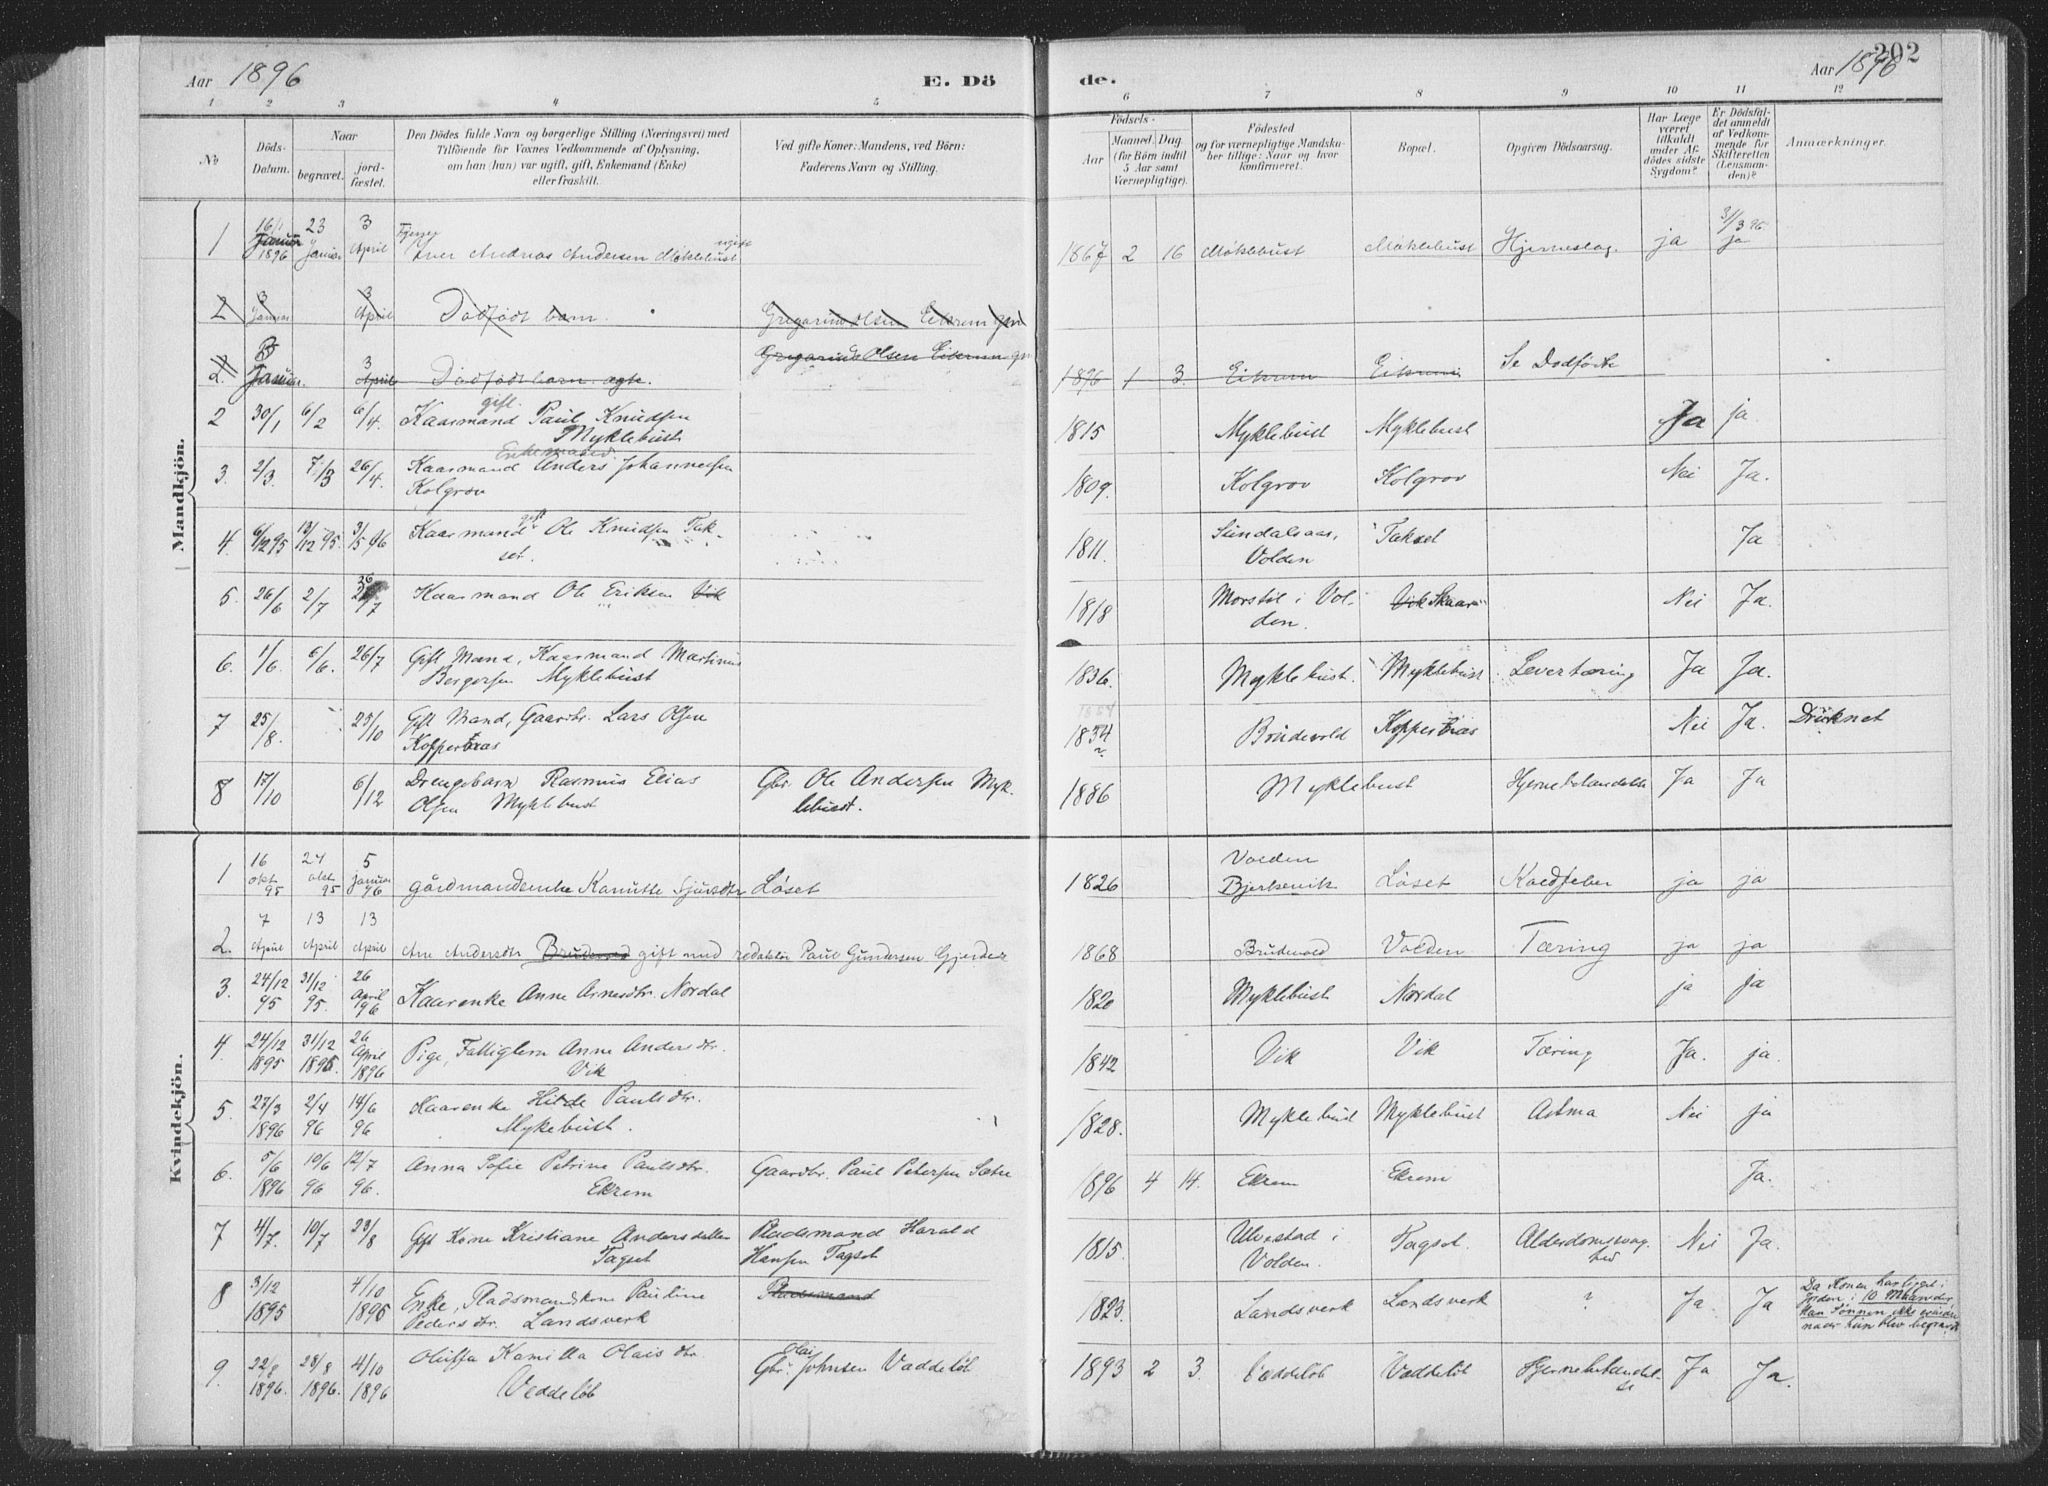 202
Aar 1896
E. Dö
de.
Aar 1896
1 2 3 4 5 6 7 8 9 10 11 12
No
Döds-
Datum.
Naar
begravet.
jord-
fæstet.
Den Dödes fulde Navn og borgerlige Stilling (Næringsvei) med
Tilföiende for Voxnes Vedkommende af Oplysning,
om han (hun) var ugift, gift, Enkemand (Enke)
eller fraskilt.
Ved gifte Koner: Mandens, ved Börn:
Faderens Navn og Stilling.
Födsels-
Aar
Maaned.
Dag.
(for Börn indtil
5 Aar samt
Værnepligtige).
Födested
og for værnepligtige Mandsku-
ber tillige: Naar og hvor
konfirmeret.
Bopæl.
Opgiven Dödsaarsag.
Har Læge
været
tilkaldt
under Af-
dödes sidste
Sygdom?
Er Dödsfal-
det anmeldt
af Vedkom-
mende for
Skifteretten
(Lensman-
den)?
Anmærkninger.
Mandkjön.
1 16/1 Januar 1896 23 Januar 3 April Iver Andreas Andersen Møklebust ugift 1867 2 16 Møklebust Møklebust Hjerneslag ja ja
2 3 Januar 3 April Dødfødt barn. Gregorius Olsen Eikrem
2. Januar. 3 April Dødfødt barn ægte. Gregorius Olsen Eikrem 1896 1 3 Eikrem Eikrem Se Dødfødte
2 30/1 6/2 6/4. Kaarmand gift. Paul Knudsen
Myklebust 1815 Myklebust Myklebust Ja ja
3. 2/3. 7/3 26/4. Kaarmand Enkemand Anders Johannessen
Kolgrov 1809. Kolgrov Kolgrov Nei Ja.
4. 6/12 95 13/12 95. 3/5 96 Kaarmand gift Ole Knudsen Tak-
set. 1811. Sundalsaas,
Volden Takset Ja
5. 26/6 2/7 26/7 Kaarmand Ole Eriksen Vik 1818 Morstøl i Vol-
den. Vik Skaar Nei Ja.
6. 1/6. 6/6. 26/7 Gift Mand, Kaarmand Martinus
Bergersen Myklebust 1836. Myklebust. Myklebust Levertæring Ja Ja.
7 25/8. 25/10 Gift Mand, Gaardbr. Lars Olsen
Koppernæs 1834 Brudevold Koppernæs Nei Ja. Druknet
8 17/10 6/12 Drengebarn Rasmus Elias
Olsen Myklebust Gbr. Ole Andersen Myk-
lebust. 1886 Myklebust Hjernebetændelse Ja Ja
Kvindekjön.
1 16 okt 95 24 okt 95 5 januar 96 gårdmandenke Kanutte Sjursdtr Løset 1826 Volden
Bjerkevik Løset Koldfeber ja ja
2. 7 April 13 April 13 April Ane Andersdtr Brudevold gift med redaktør Paul Gundersen Gjerder 1868 Brudevold Volden Tæring ja ja
3. 24/12 95 31/12 95. 26 April 96 Kaarenke Anne Arnesdtr. Nordal 1820 Myklebust Nordal ja ja
4. 24/12 1895 31/12 1895. 26 April 1896 Pige, Fattiglem Anne Andersdtr.
Vik 1842 Vik Vik Tæring Ja. ja.
5. 27/3 1896 2/4 96 14/6 96 Kaarenke Hilde Paulsdtr.
Mykebust. 1828. Myklebust Myklebust Astma Nei ja
6. 5/6 1896 10/6 96 12/7 96. Anna Sofie Petrine Paulsdtr.
Ekrem Gaardbr. Paul Petersen Sætre 1896 4 14. Ekrem Ekrem Ja.
7 4/7. 10/7 23/8 Gift Kone Kristiane Andersdatter
Tagset Pladsmand Harald
Hansen Tagset 1815. Ulvestad i
Volden. Tagset. Alderdomssvag-
hed Nei Ja.
8 3/12 1895 4/10 1896 Enke, Pladsmandskone Pauline
Pedersdtr. Landsverk Pladsmand 1823. Landsverk Landsverk ? Ja. Ja Da Konen har ligget i
Jorden i 10 Maaneder
kan Sønnen ikke erindre
naar hun blev begravet
9. 22/8 1896. 28/8 1896. 4/10 1896 Oluffa Kamilla Olaisdtr.
Veddeløb Gbr. Olai Johnsen Vaddeløb 1893 2 3. Vaddeløb Vaddeløb Hjernebetændel-
se Ja Ja.